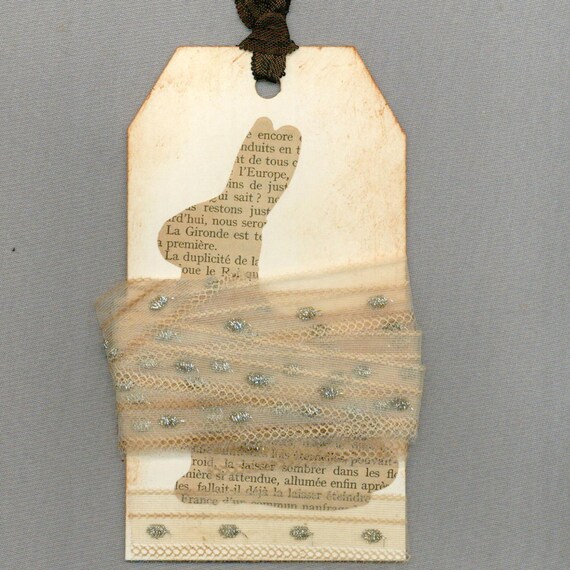 e encore
nduits en
nt de tous c
l'Europe,
ins de just
qui sait ? no
us restons just
rd'hui, nous sero
La Gironde est te
a première.
La duplicité de la
joue le
roid, la laisser sombrer dans les fl
nière si attendue, allumée enfin après
les, fallait-il déjà la laisser éteindre
France d'un commun naufrag